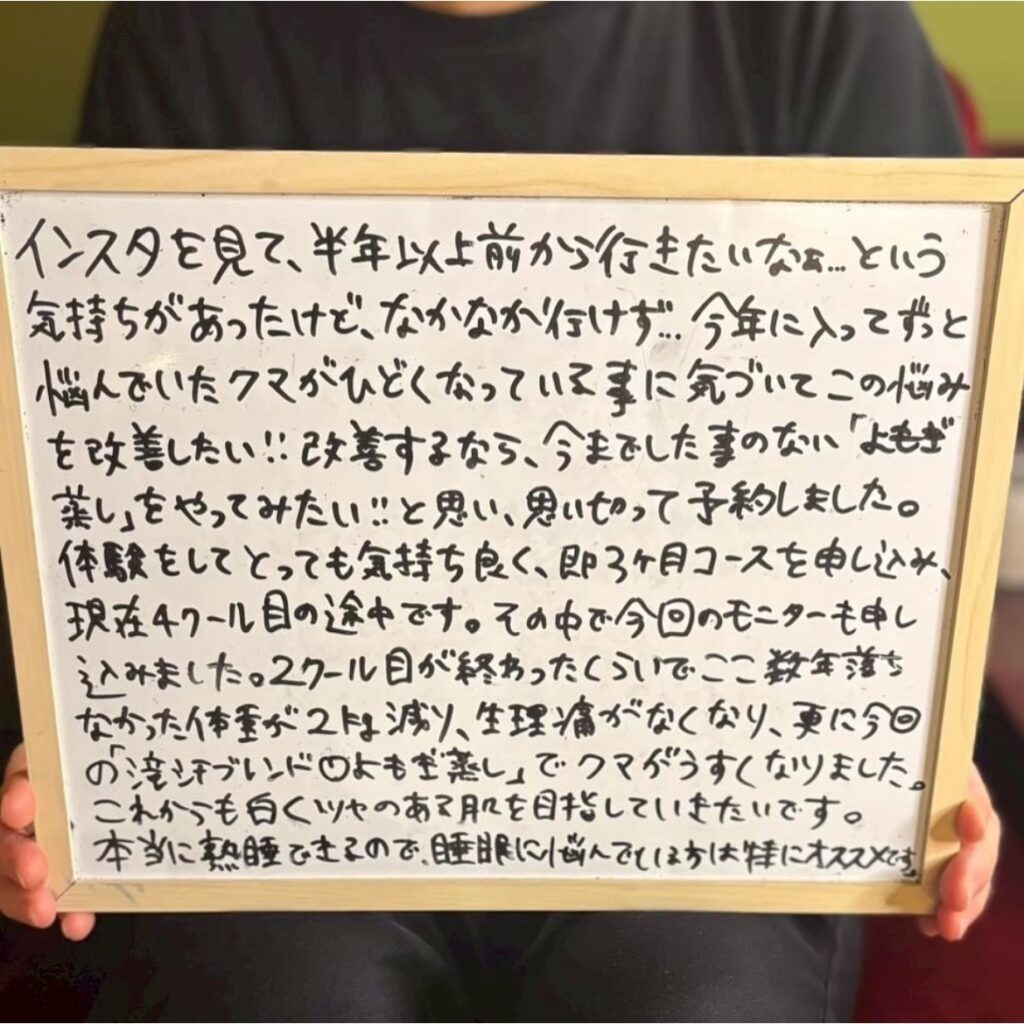 インスタを見て、半年以上前から行きたいなぁ…という
気持ちがあったけど、なかなか行けず…今年に入ってずっと
悩んでいたクマがひどくなっている事に気づいてこの悩み
を改善したい!!改善するなら、今までした事のない「よもぎ
蒸し」をやってみたい!!と思い、思い切って予約しました。
体験をしてとっても気持ち良く、即3ヶ月コースを申し込み、
現在4クール目の途中です。その中で今回のモニターも申し
込みました。2クール目が終わったくらいでここ数年落ち
なかった体重が2kg減り、生理痛がなくなり、更に今回
の「滝汗ブレンドのよもぎ蒸し」でクマがうすくなりました。
これからも白くツヤのある肌を目指していきたいです。
本当に熟睡できるので、睡眠に悩んでいる方は特にオススメです。